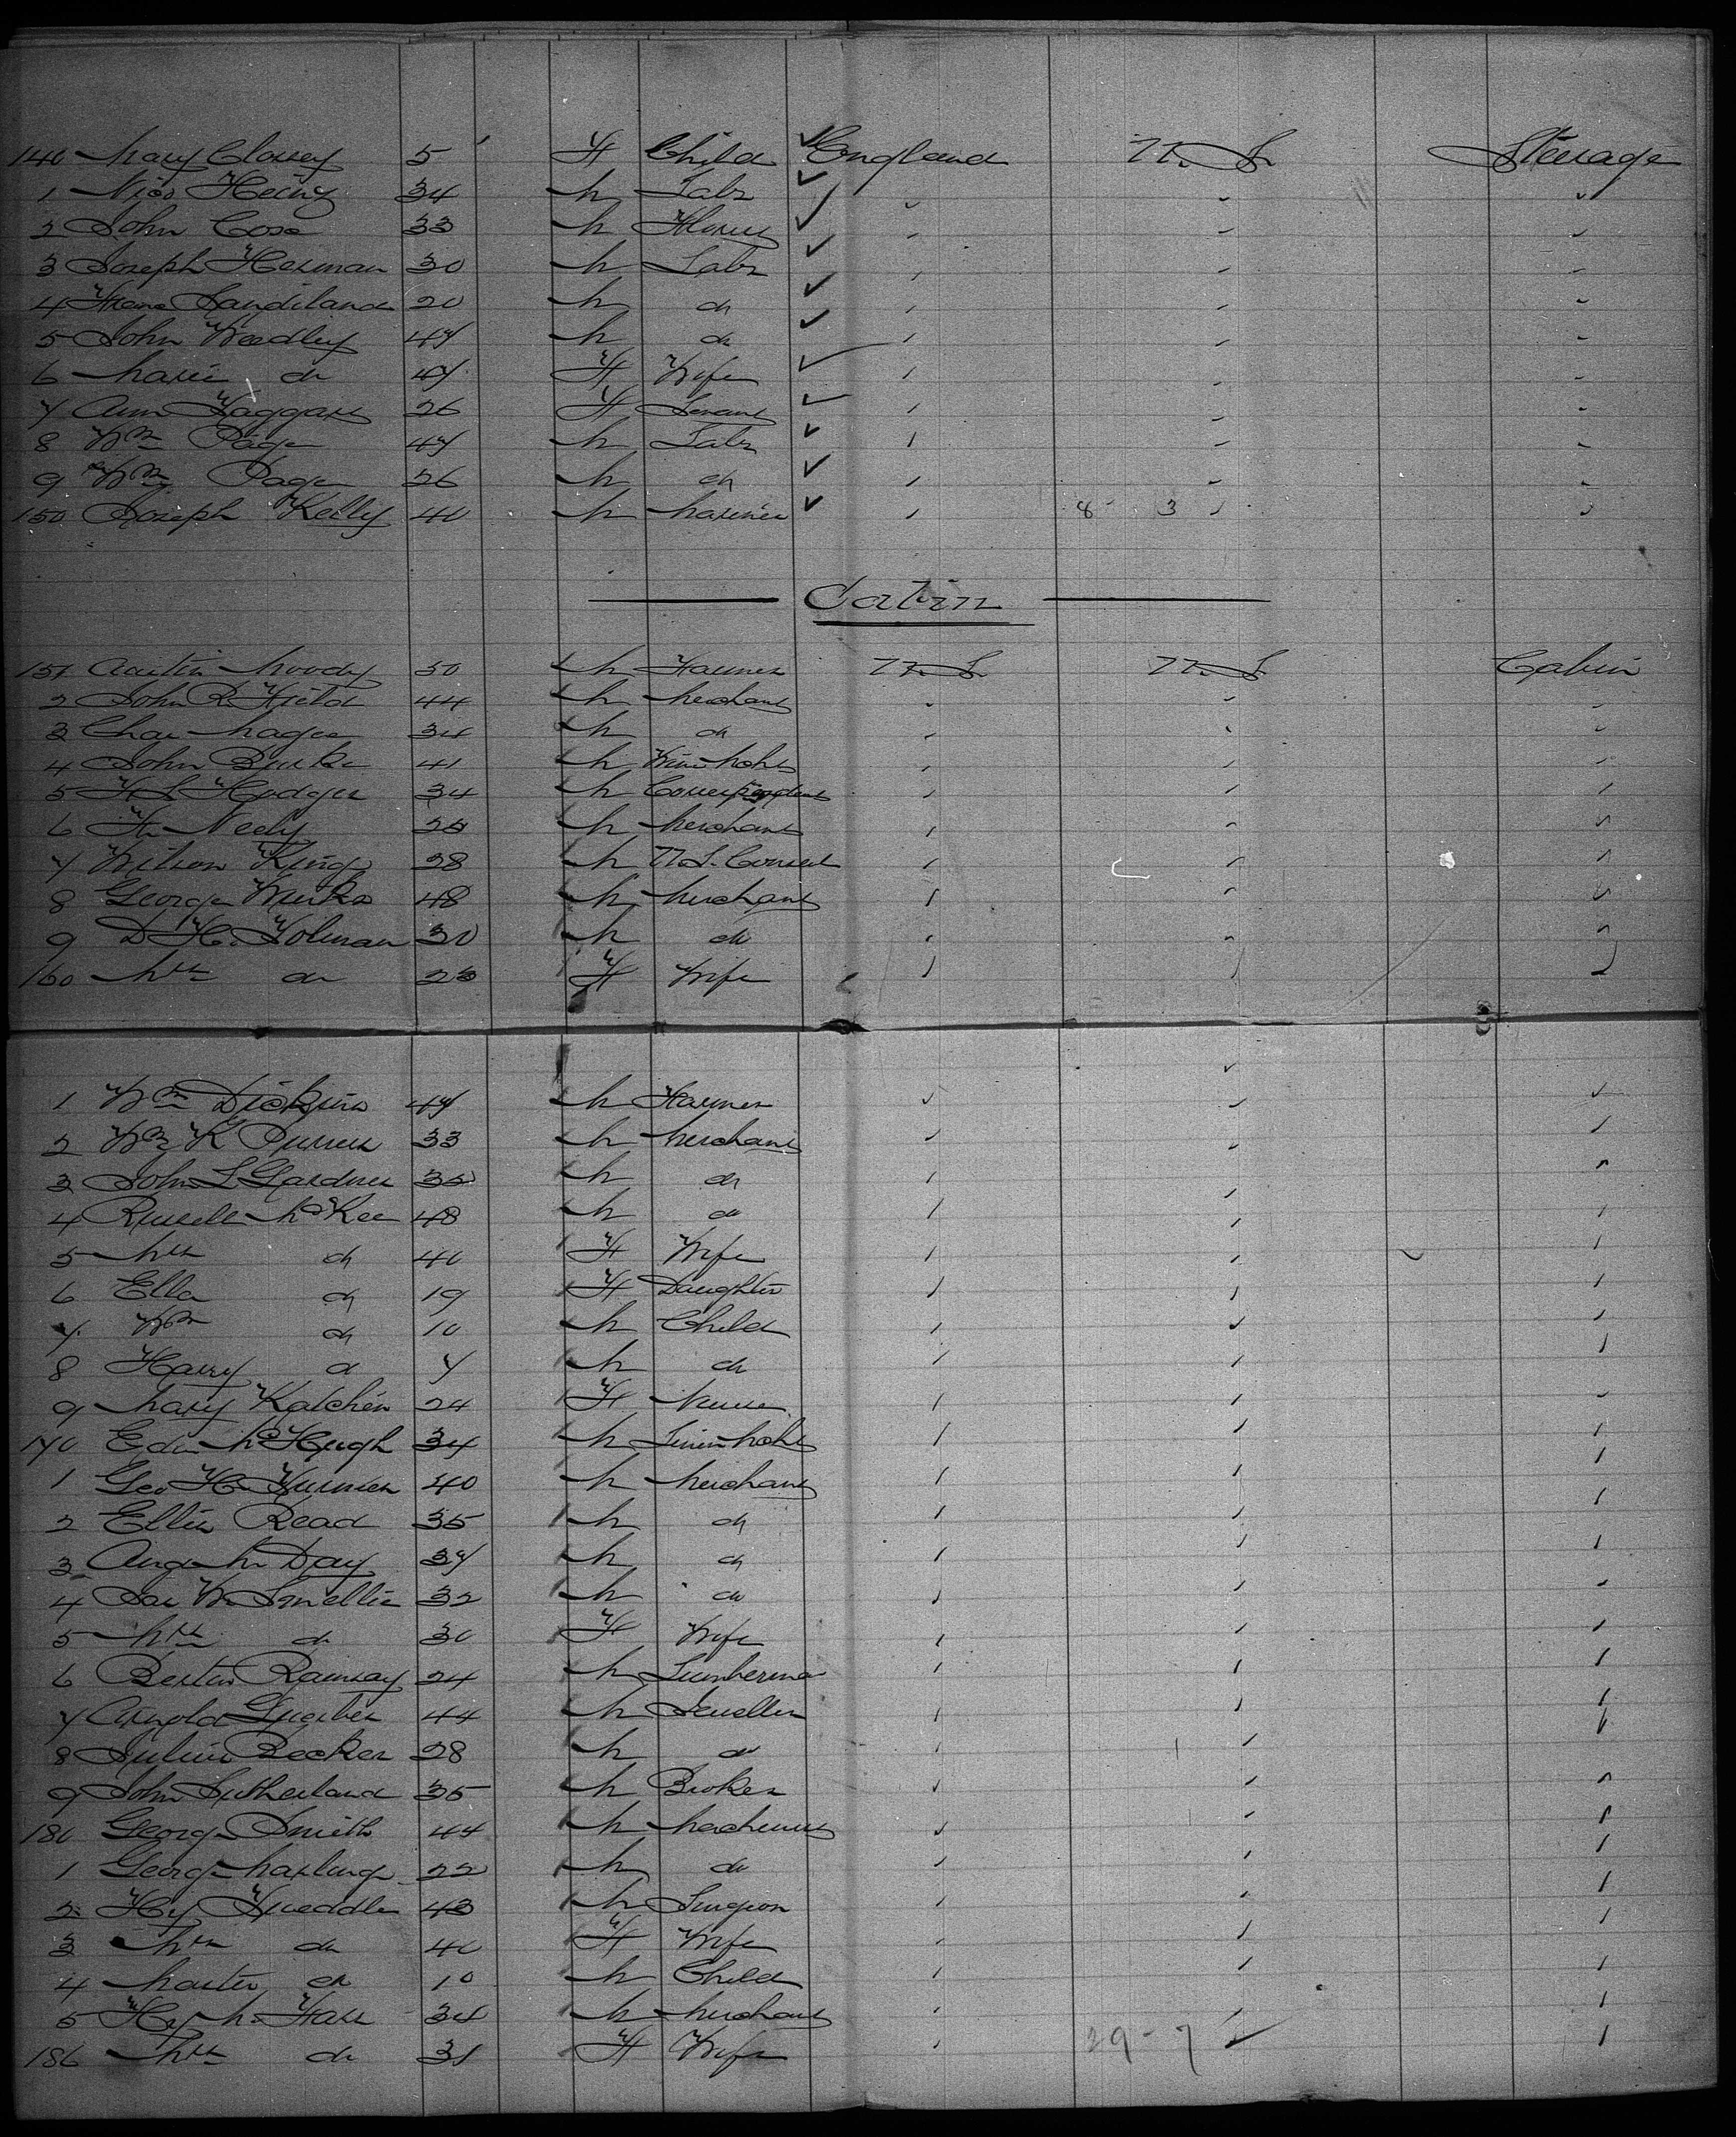 140 Mary Clossey 5 F Child England U.S. Steerage
1 34 M Labr
2 John Cose 33 M
3 Joseph Herman 30 M Labr
4 Sandiland 20 M do
5 John Weedley 47 M do
6 Marie do 47 F Wife
7 Ann Haggart 26 F Servant
8 Wm Page 47 M Labr
9 Wm Page 26 M do
150 Joseph Kelly 40 M Mariner 8 3
Cabin
151 Austin Moody 50 M Farmer U.S. U.S. Cabin
2 John R. Field 44 M Merchant
3 Chas Magee 34 M do
4 John Burke 41 M Wine Mcht
5 H S Hodges 34 M Correspondent
6 Neely 28 M Merchant
7 Wilson King 28 M U.S. Consul
8 George Weeks 48 M Merchant
9 D H. Holman 30 M do
160 Mrs do 28 F Wife
1 Wm Dickins 47 M Farmer
2 Wm K 33 M Merchant
3 John S Gardner 35 M do
4 Russell McKee 48 M do
5 Mrs do 40 F Wife
6 Ella do 19 F Daughter
7 Wm do 10 M Child
8 Harry do 7 M do
9 Mary Katchen 24 F Nurse
170 Edw McHugh 34 M Linen Mcht
1 Geo H. 40 M Merchant
2 Ellis Read 35 M do
3 Aug. M. Day 37 M do
4 Jas W. Smellie 32 M do
5 Mrs do 30 F Wife
6 Ramsay 24 M Lumberman
7 Arnold 44 M Jeweller
8 Julius Becker 28 M do
9 John Sutherland 35 M Broker
180 George Smith 44 M Machinist
1 George Marling 22 M do
2 Hy 43 M Surgeon
3 Mrs do 40 F Wife
4 Master do 10 M Child
5 Hy M. 34 M Merchant
186 Mrs do 31 F Wife 29 - 7